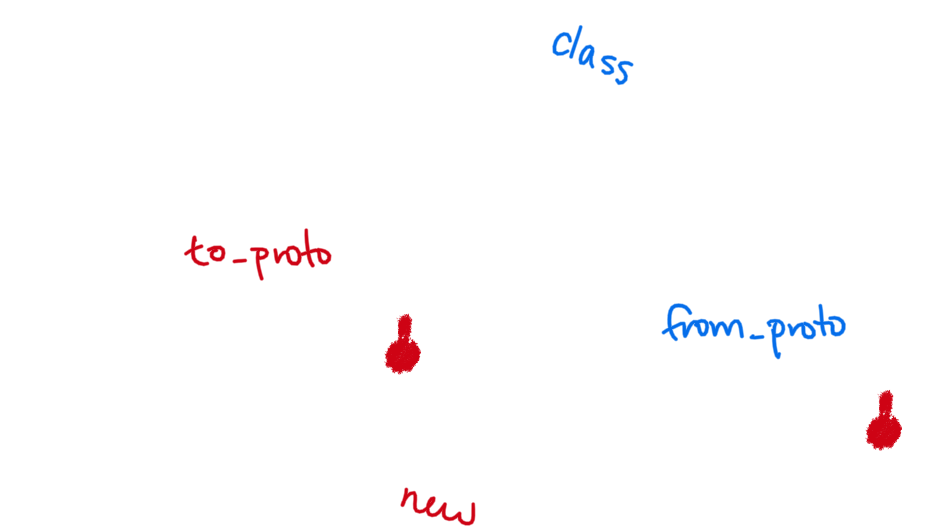 class
to_proto
from_proto
new